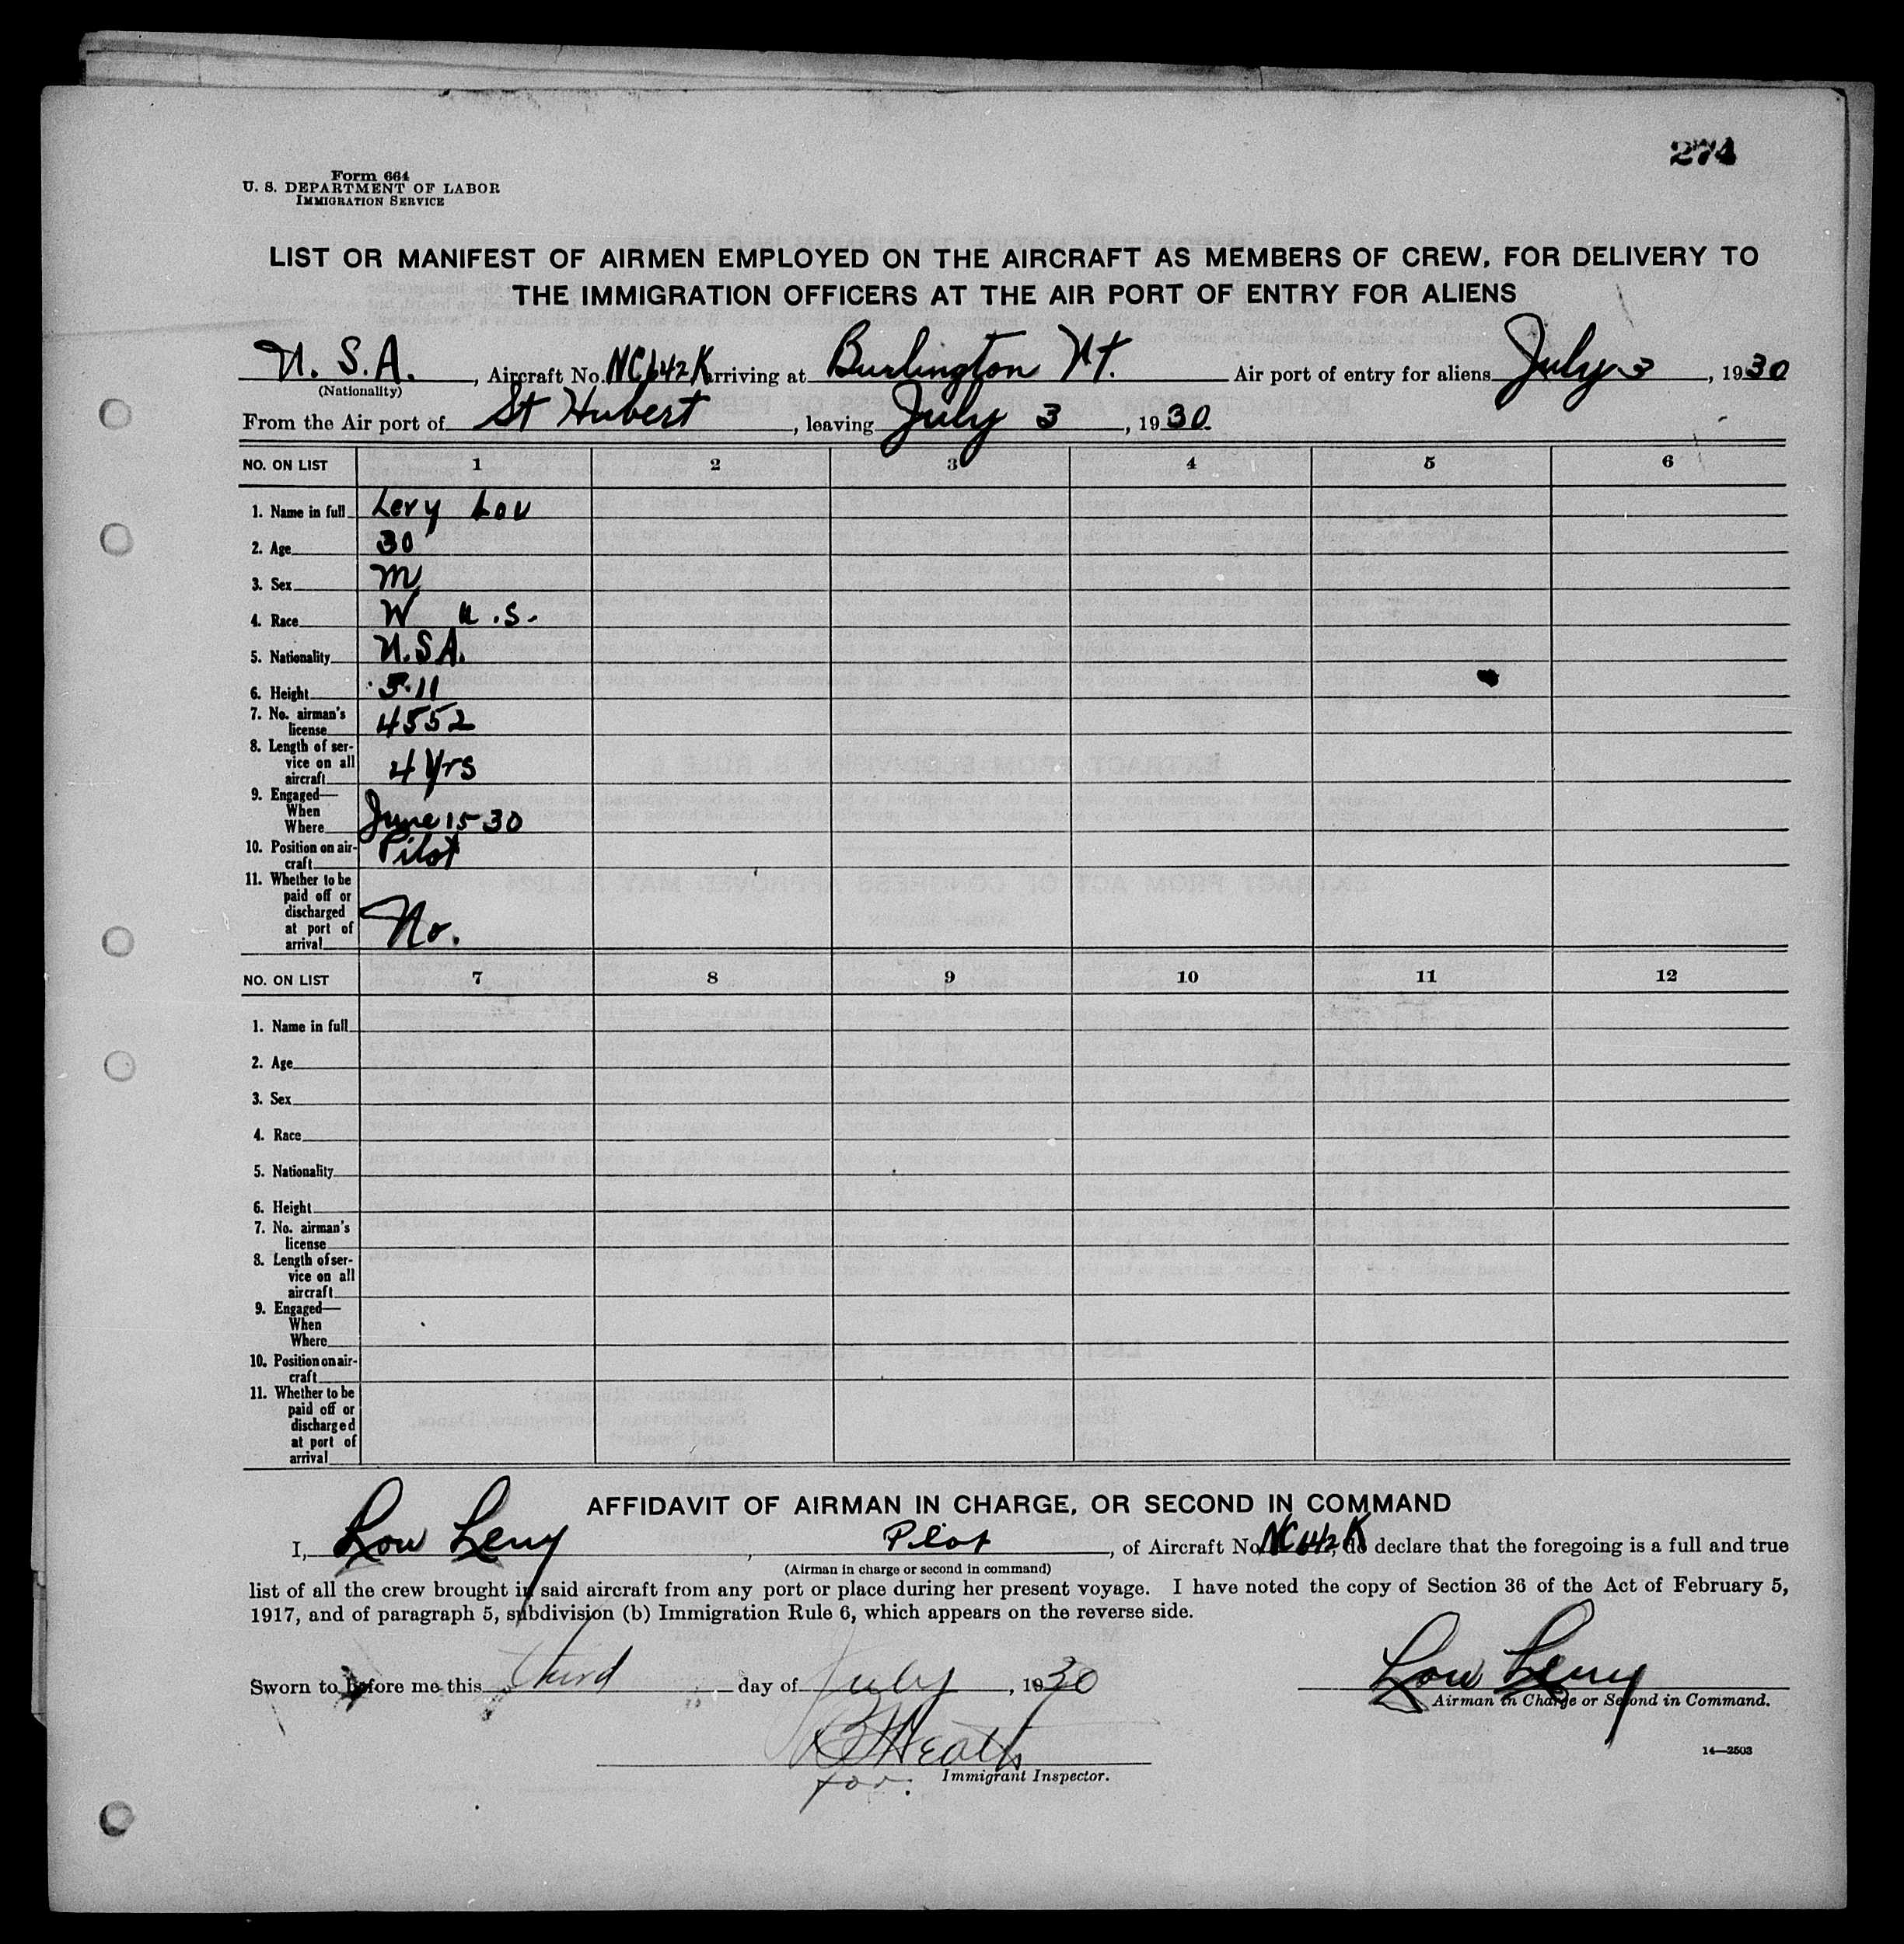 274
Form 664
U. S. DEPARTMENT OF LABOR
IMMIGRATION SERVICE
LIST OR MANIFEST OF AIRMEN EMPLOYED ON THE AIRCRAFT AS MEMBERS OF CREW, FOR DELIVERY TO
THE IMMIGRATION OFFICERS AT THE AIR PORT OF ENTRY FOR ALIENS
U.S.A., Aircraft No. NC642K arriving at Burlington Vt. Air port of entry for aliens July 3, 1930
(Nationality)
From the Air port of St Hubert, leaving July 3, 1930.
NO. ON LIST 1 2 3 4 5 6
1. Name in full Levy Lou
2. Age 30
3. Sex M
4. Race W U.S.
5. Nationality U.S.A.
6. Height 5-11
7. No. airman's
license 4552
8. Length of ser-
vice on all
aircraft 4 Yrs
9. Engaged—
When
Where June 15 30
10. Position on air-
craft Pilot
11. Whether to be
paid off or
discharged
at port of
arrival No.
NO. ON LIST 7 8 9 10 11 12
1. Name in full
2. Age
3. Sex
4. Race
5. Nationality
6. Height
7. No. airman's
license
8. Length of ser-
vice on all
aircraft
9. Engaged—
When
Where
10. Position on air-
craft
11. Whether to be
paid off or
discharged
at port of
arrival
AFFIDAVIT OF AIRMAN IN CHARGE, OR SECOND IN COMMAND
I, Lou Levy, Pilot, of Aircraft No. NC642K, do declare that the foregoing is a full and true
(Airman in charge or second in command)
list of all the crew brought in said aircraft from any port or place during her present voyage. I have noted the copy of Section 36 of the Act of February 5,
1917, and of paragraph 5, subdivision (b) Immigration Rule 6, which appears on the reverse side.
Sworn to before me this third day of July, 1930
Lou Levy
Airman in Charge or Second in Command.
Heath
for. Immigrant Inspector.
14—2503